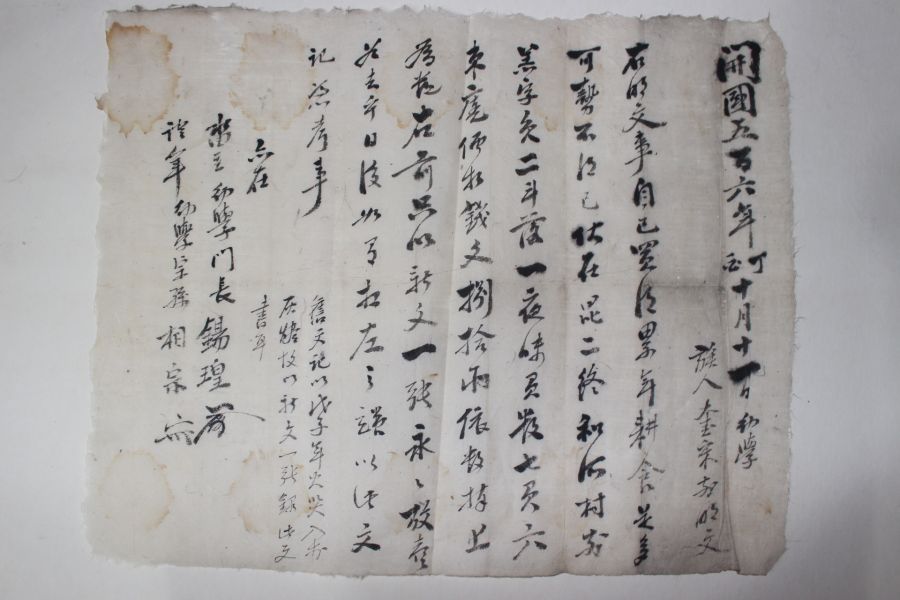 開國五百六年丁酉十月十一日幼學
族人奎宋前明文
右明文事自己買得累年耕食是多
可勢不得已伏在昆二終和洞村前
羔字員二斗落一夜味員數七負六
束庫價折錢文捌拾兩依數捧上
爲遣右前只以新文一張永〻放賣
爲去乎日後以有相左之談以此文
記憑考事
舊文記以戊子年火災入於
灰燼故以新文一張錄此文
書耳
亦在
畓主幼學門長錫瑝
證筆幼學宗孫相宗